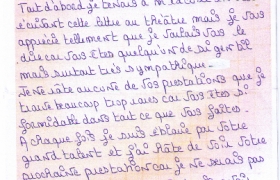 Tout d'abord je tenais à m'
écrivant cette lettre au théâtre mais je vous
apprécie tellement que je voulais vous le
dire car vous êtes quelqu'un de si gentil
mais surtout très sympathique.
Je ne rate aucune de vos prestations que je
trouve beaucoup trop rares car vous êtes si
formidable dans tout ce que vous faites.
A chaque fois je suis éblouie par votre
grand talent et j'ai hâte de voir votre
prochaine prestation car je ne serais pas